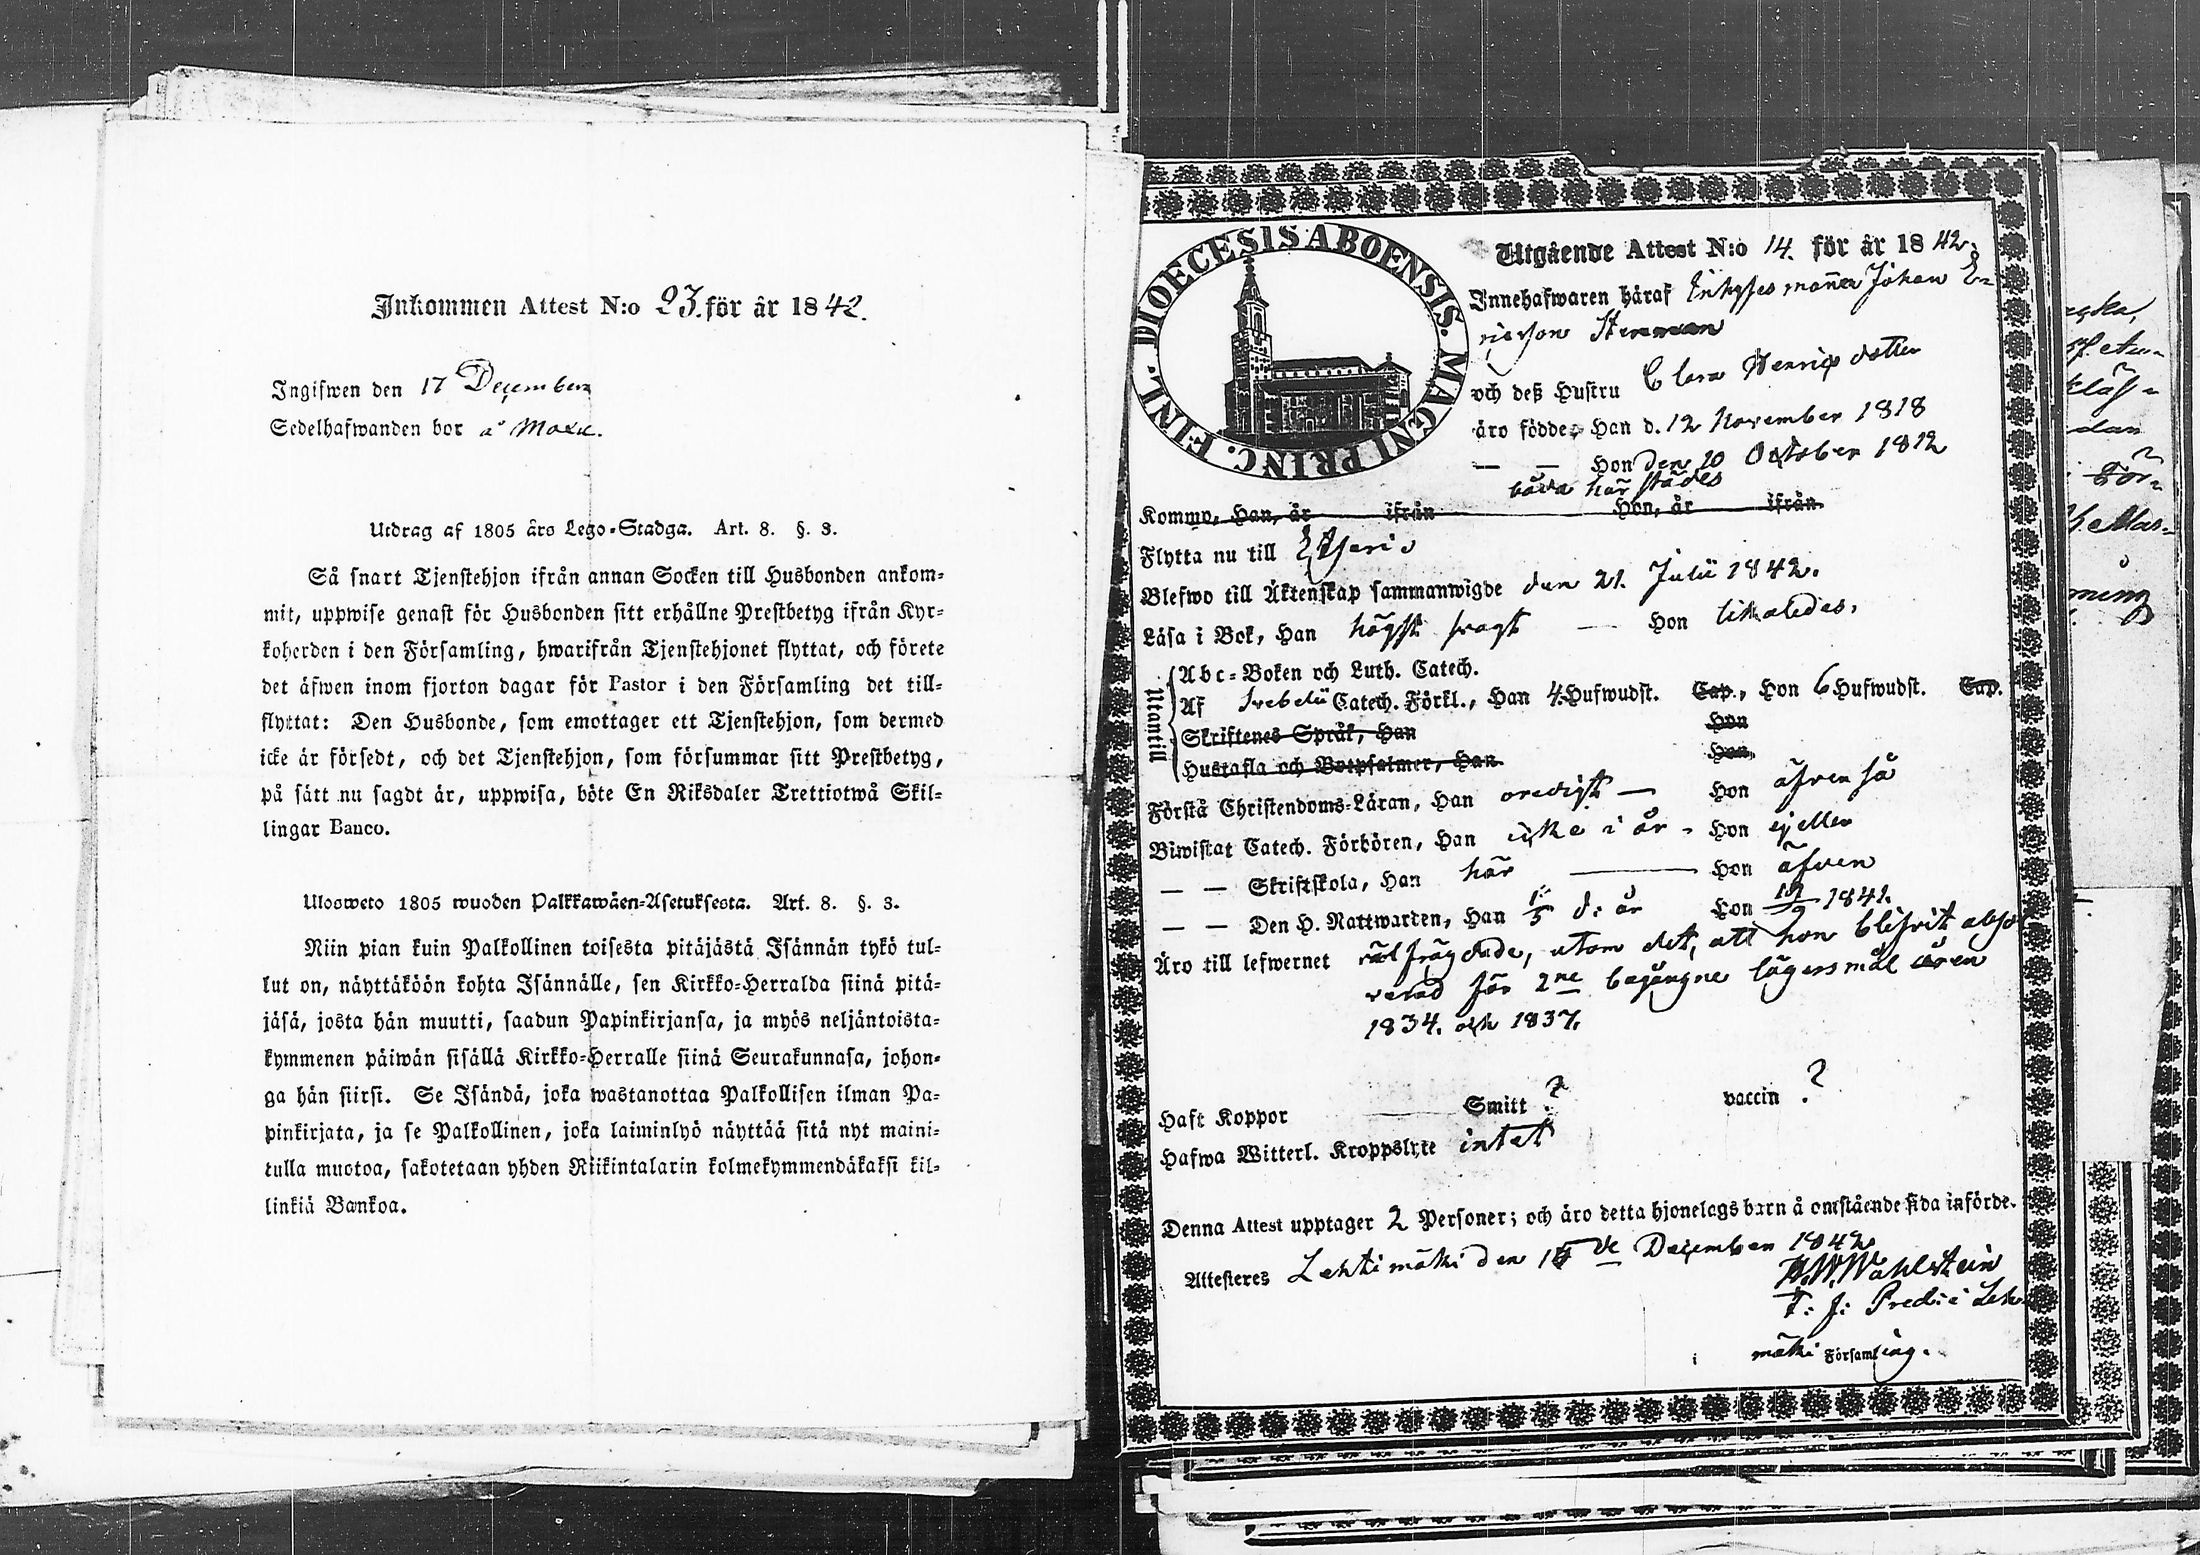 Inkommen Attest N:o 23. för år 1842.
Ingifwen den 17 December
Sedelhafwanden bor å
Utdrag af 1805 års Lego-Stadga. Art. 8. §. 3.
Så snart Tjenstehjon ifrån annan Socken till Husbonden ankom-
mit, uppwise genast för Husbonden sitt erhållne Prestbetyg ifrån Kyr-
koherden i den Församling, hwarifrån Tjenstehjonet flyttat, och förete
det äfwen inom fjorton dagar för Pastor i den Församling det till-
flyttat: Den Husbonde, som emottager ett Tjenstehjon, som dermed
icke är försedt, och det Tjenstehjon, som försummar sitt Prestbetyg,
på sätt nu sagdt är, uppwisa, böte En Riksdaler Trettiotwå Skil-
lingar Banco.
Ulosweto 1805 wuoden Palkkawäen-Asetuksesta. Art. 8. §. 3.
Niin pian kuin Palkollinen toisesta pitäjästä Isännän tykö tul-
lut on, näyttäköön kohta Isännälle, sen Kirkko-Herralda siinä pitä-
jäsä, josta hän muutti, saadun Papinkirjansa, ja myös neljäntoista-
kymmenen päiwän sisällä Kirkko-Herralle siinä Seurakunnasa, johon-
ga hän siirsi. Se Isändä, joka wastanottaa Palkollisen ilman Pa-
pinkirjata, ja se Palkollinen, joka laiminlyö näyttää sitä nyt maini-
tulla muotoa, sakotetaan yhden Riikintalarin kolmekymmendäkaksi kil-
linkiä Bankoa.
DIOECESIS ABOENSIS. MAGNI PRINC. FINL.
Utgående Attest N:o 14. för år 1842.
Innehafwaren häraf Inhyses mannen Johan E-
ricsson Stenman
och deß Hustru Clara Henrics dotter
äro födde, Han d. 12 November 1818
— — Hon den 10 October 1812
båda här städes
Kommo, Han, år ifrån Hon, år ifrån
Flytta nu till Etseri
Blefwo till Äktenskap sammanwigde den 21. Julii 1842.
Läsa i Bok, Han högst swagt — Hon likaledes.
Utantill
Abc-Boken och Luth. Catech.
Af Svebelii Catech. Förkl., Han 4. Hufwudst. Cap., Hon 6 Hufwudst. Cap.
Skriftenes Språk, Han Hon
Hustafla och Botpsalmer, Han Hon,
Förstå Christendoms-Läran, Han oredigt — Hon äfven så
Biwistat Catech. Förhören, Han icke i år - Hon ej eller
— — Skriftskola, Han här — Hon äfven
— — Den H. Nattwarden, Han d: år Hon 1841.
Äro till lefwernet välfrägdade, utom det, att hon blifvit absol
verad för 2ne begångne lägersmål åren
1834. och 1837.
Haft Koppor Smitt ? vaccin ?
Hafwa Witterl. Kroppslyte intet
Denna Attest upptager 2 Personer; och äro detta hjonelags barn å omstående sida införde.
Attesteres Lehtimäki den 15 de December 1842
Wahlstein
T: f: Pred: i Leh-
i mäki Församling.